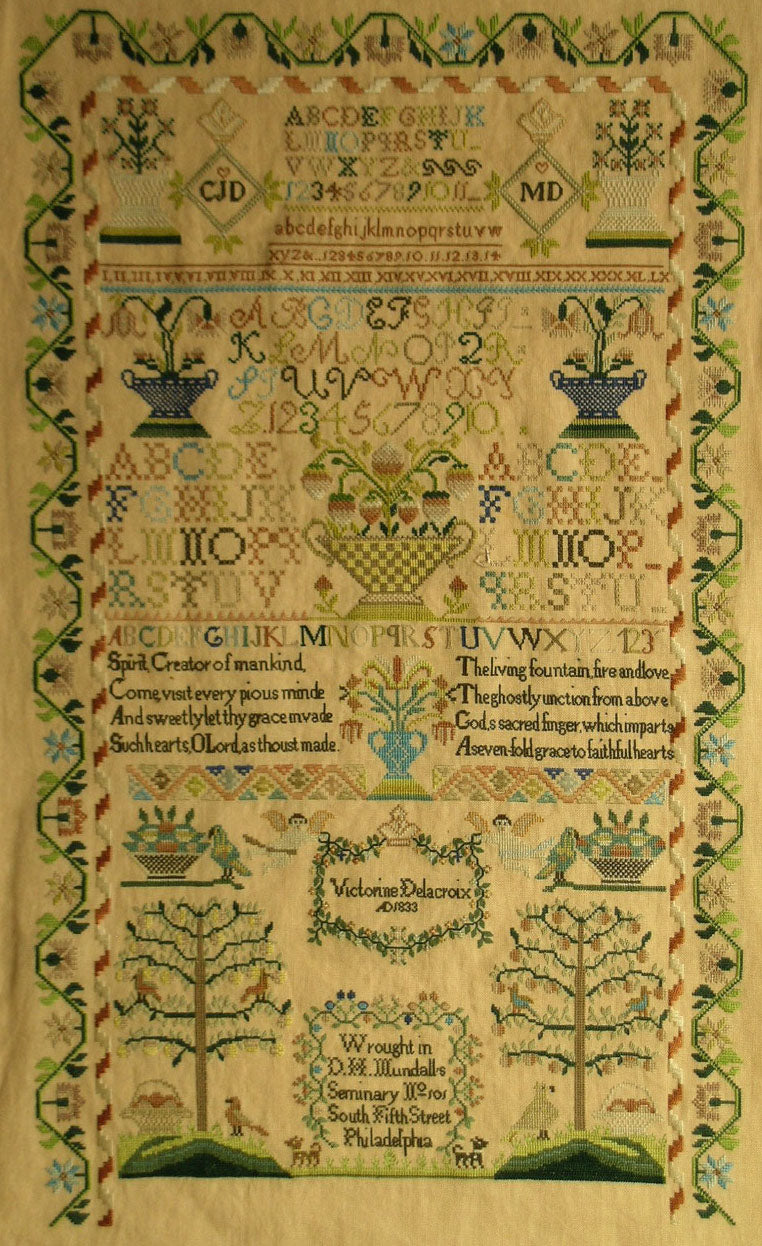 ABCDEFGHIJK
LMNOPqRSTU_
VWXYZ&
1234567891011_
CJD
MD
abcdefghijklmnopqrstuvw
XYZ&..1234567891011.12.13.14
I,II,III,IV,V,VI,VII,VIII,IX,X,XI,XII,XIII,XIV,XV,XVI,XVII,XVIII,XIX,XX,XXX,XL,LX
ABCDEFGHIJ
KLMNOPQR
STUVWXY
Z12345678910..
ABCDE
FGHIJK
LMNOPq
RSTUV
ABCDE_
FGHIJK
LMNOP_
qRSTU
ABCDEFGHIJKLMNOPqRSTUVWXYZ123
Spirit, Creator of mankind,
Come, visit every pious minde
And sweetly let thy grace invade
Such hearts, O Lord, as thoust made.
The living fountain, fire and love
The ghostly unction from above
God,s sacred finger, which imparts
A seven-fold grace to faithful hearts
Victorine Delacroix
AD1833
Wrought in
D.H. Mundall,s
Seminary No 101
South Fifth Street
Philadelphia